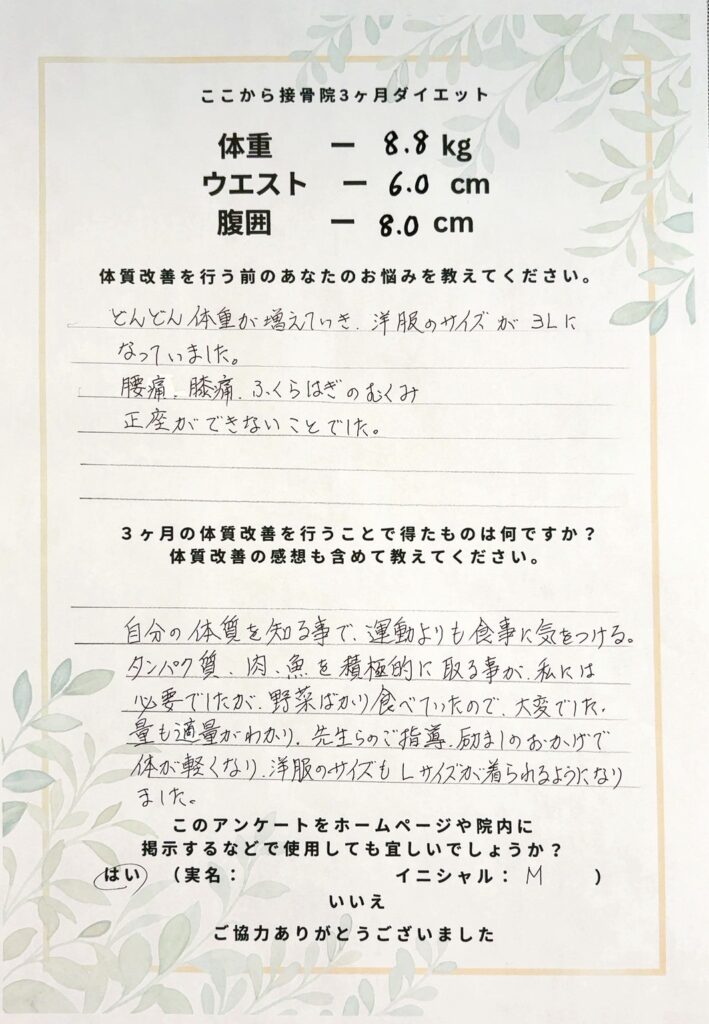 ここから接骨院3ヶ月ダイエット
体重 ー 8.8 kg
ウエスト ー 6.0 cm
腹囲 ー 8.0 cm
体質改善を行う前のあなたのお悩みを教えてください。
どんどん体重が増えていき、洋服のサイズが3Lに
なっていました。
腰痛、膝痛、ふくらはぎのむくみ
正座ができないことでした。
3ヶ月の体質改善を行うことで得たものは何ですか？
体質改善の感想も含めて教えてください。
自分の体質を知る事で、運動よりも食事に気をつける。
タンパク質、肉、魚を積極的に取る事が、私には
必要でしたが、野菜ばかり食べていたので、大変でした。
量も適量がわかり、先生らのご指導、励ましのおかげで
体が軽くなり、洋服のサイズもLサイズが着られるようになり
ました。
このアンケートをホームページや院内に
掲示するなどで使用しても宜しいでしょうか？
はい （実名： イニシャル： M ）
いいえ
ご協力ありがとうございました